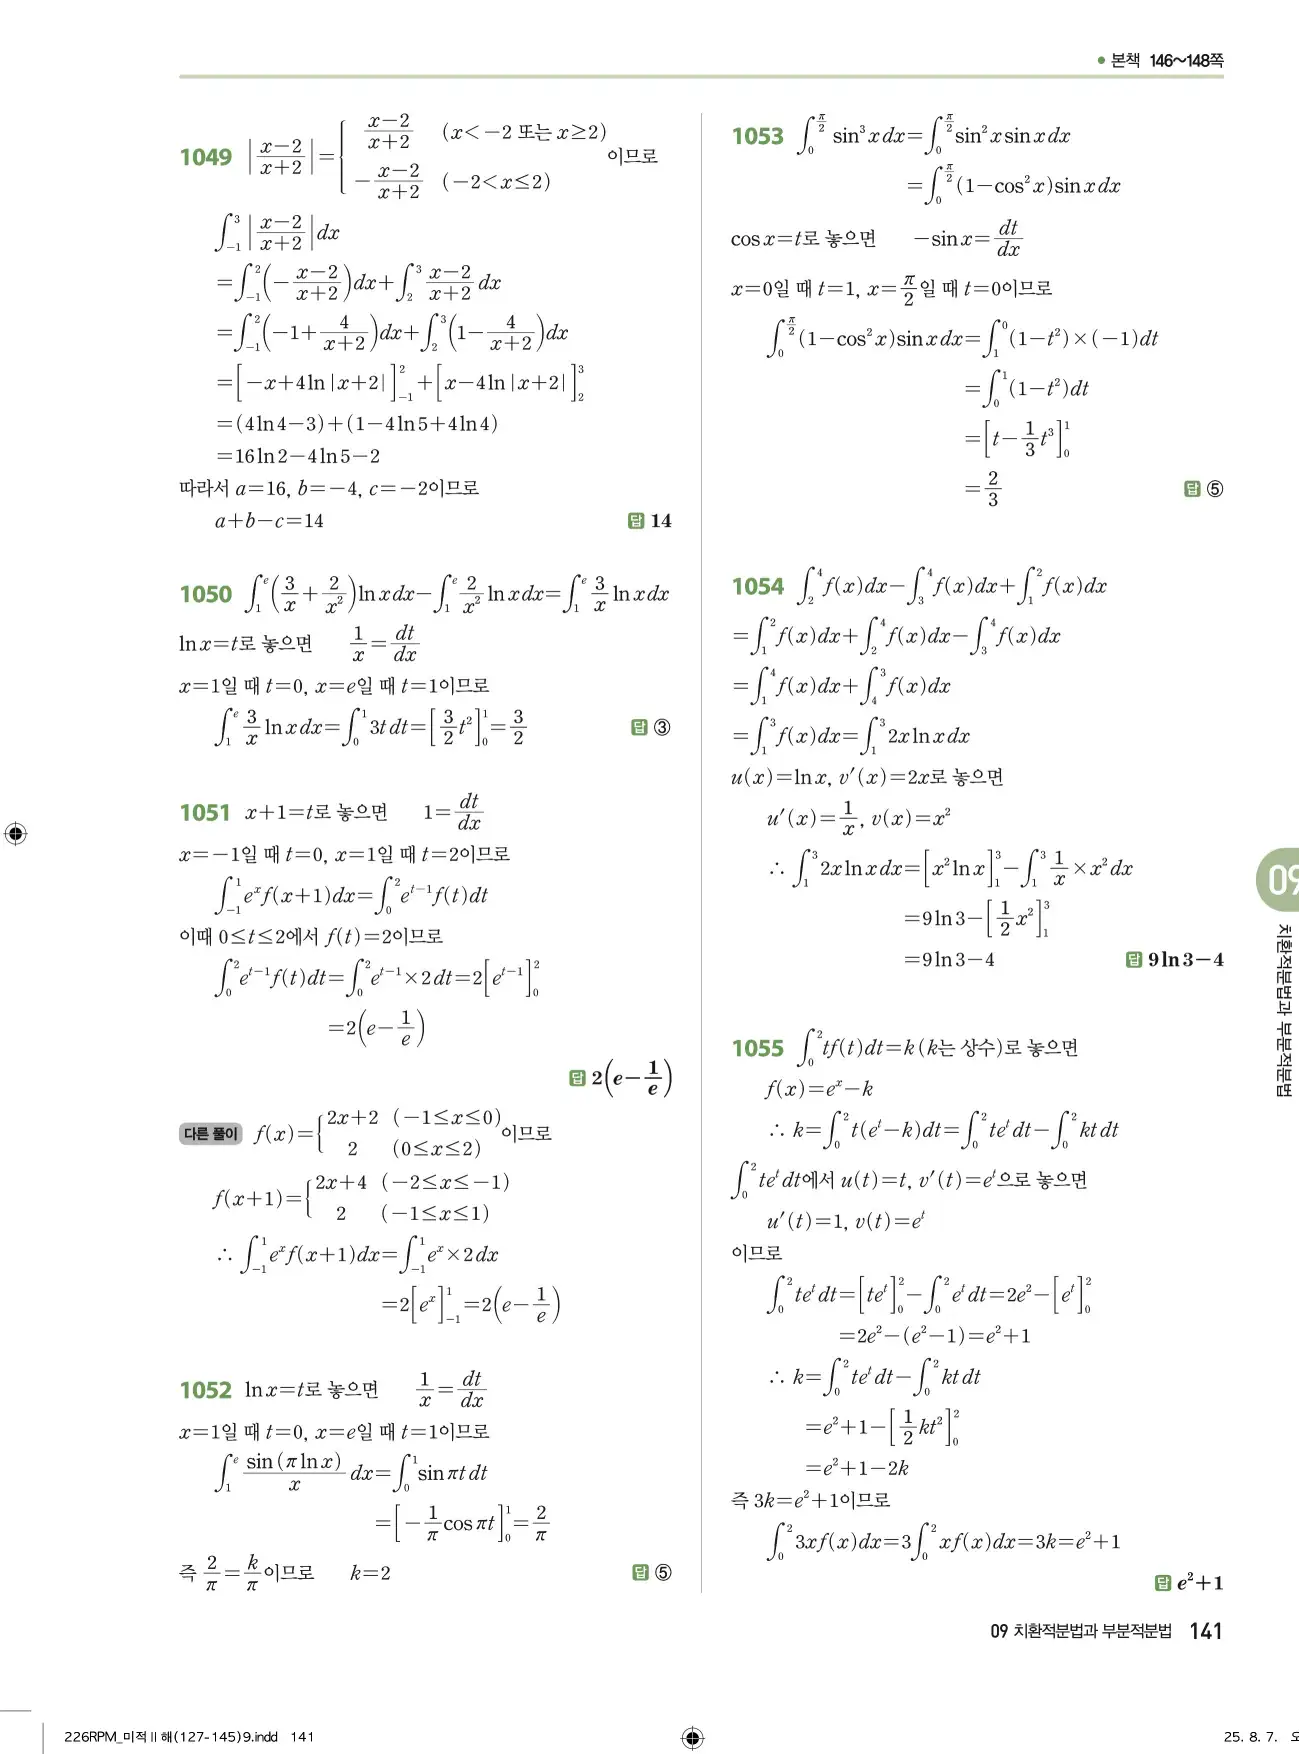 ● 본책 146~148쪽
1049 |(x-2)/(x+2)| = { (x-2)/(x+2) (x<-2 또는 x≥2)
-(x-2)/(x+2) (-2<x≤2) 이므로
∫_{-1}^{3} |(x-2)/(x+2)| dx
=∫_{-1}^{2} (-(x-2)/(x+2))dx+∫_{2}^{3} (x-2)/(x+2) dx
=∫_{-1}^{2} (-1+4/(x+2))dx+∫_{2}^{3} (1-4/(x+2))dx
=[-x+4ln|x+2|]_{-1}^{2}+[x-4ln|x+2|]_{2}^{3}
=(4ln4-3)+(1-4ln5+4ln4)
=16ln2-4ln5-2
따라서 a=16, b=-4, c=-2이므로
a+b-c=14 답 14
1050 ∫_{1}^{e} (3/x+2/x²)ln x dx-∫_{1}^{e} 2/x² ln x dx=∫_{1}^{e} 3/x ln x dx
ln x=t로 놓으면 1/x=dt/dx
x=1일 때 t=0, x=e일 때 t=1이므로
∫_{1}^{e} 3/x ln x dx=∫_{0}^{1} 3t dt=[3/2 t²]_{0}^{1}=3/2 답 ③
1051 x+1=t로 놓으면 1=dt/dx
x=-1일 때 t=0, x=1일 때 t=2이므로
∫_{-1}^{1} e^x f(x+1)dx=∫_{0}^{2} e^{t-1} f(t)dt
이때 0≤t≤2에서 f(t)=2이므로
∫_{0}^{2} e^{t-1} f(t)dt=∫_{0}^{2} e^{t-1}×2dt=2[e^{t-1}]_{0}^{2}
=2(e-1/e)
답 2(e-1/e)
다른 풀이 f(x)={ 2x+2 (-1≤x≤0)
2 (0≤x≤2) 이므로
f(x+1)={ 2x+4 (-2≤x≤-1)
2 (-1≤x≤1)
∴ ∫_{-1}^{1} e^x f(x+1)dx=∫_{-1}^{1} e^x×2dx
=2[e^x]_{-1}^{1}=2(e-1/e)
1052 ln x=t로 놓으면 1/x=dt/dx
x=1일 때 t=0, x=e일 때 t=1이므로
∫_{1}^{e} sin(π ln x)/x dx=∫_{0}^{1} sin πt dt
=[-1/π cos πt]_{0}^{1}=2/π
즉 2/π=k/π이므로 k=2 답 ⑤
1053 ∫_{0}^{π/2} sin³x dx=∫_{0}^{π/2} sin²x sin x dx
=∫_{0}^{π/2} (1-cos²x)sin x dx
cos x=t로 놓으면 -sin x=dt/dx
x=0일 때 t=1, x=π/2일 때 t=0이므로
∫_{0}^{π/2} (1-cos²x)sin x dx=∫_{1}^{0} (1-t²)×(-1)dt
=∫_{0}^{1} (1-t²)dt
=[t-1/3 t³]_{0}^{1}
=2/3 답 ⑤
1054 ∫_{2}^{4} f(x)dx-∫_{3}^{4} f(x)dx+∫_{1}^{2} f(x)dx
=∫_{1}^{2} f(x)dx+∫_{2}^{4} f(x)dx-∫_{3}^{4} f(x)dx
=∫_{1}^{4} f(x)dx+∫_{4}^{3} f(x)dx
=∫_{1}^{3} f(x)dx=∫_{1}^{3} 2x ln x dx
u(x)=ln x, v′(x)=2x로 놓으면
u′(x)=1/x, v(x)=x²
∴ ∫_{1}^{3} 2x ln x dx=[x² ln x]_{1}^{3}-∫_{1}^{3} 1/x×x² dx
=9ln3-[1/2 x²]_{1}^{3}
=9ln3-4 답 9ln3-4
1055 ∫_{0}^{2} tf(t)dt=k (k는 상수)로 놓으면
f(x)=e^x-k
∴ k=∫_{0}^{2} t(e^t-k)dt=∫_{0}^{2} te^t dt-∫_{0}^{2} kt dt
∫_{0}^{2} te^t dt에서 u(t)=t, v′(t)=e^t으로 놓으면
u′(t)=1, v(t)=e^t
이므로
∫_{0}^{2} te^t dt=[te^t]_{0}^{2}-∫_{0}^{2} e^t dt=2e²-[e^t]_{0}^{2}
=2e²-(e²-1)=e²+1
∴ k=∫_{0}^{2} te^t dt-∫_{0}^{2} kt dt
=e²+1-[1/2 kt²]_{0}^{2}
=e²+1-2k
즉 3k=e²+1이므로
∫_{0}^{2} 3xf(x)dx=3∫_{0}^{2} xf(x)dx=3k=e²+1
답 e²+1
09
치환적분법과 부분적분법
09 치환적분법과 부분적분법 141
226RPM_미적Ⅱ해(127-145)9.indd 141
25. 8. 7.